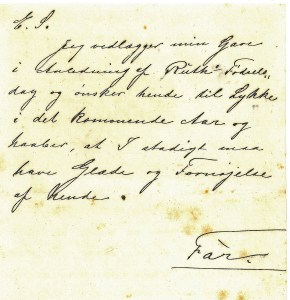 E. S.
Jeg vedlægger min Gave
i Anledning af Ruths Fødsels-
dag og ønsker hende til Lykke
i det kommende Aar og
haaber, at I stadigt maa
have Glæde og Fornøjelse
af hende.
Far.